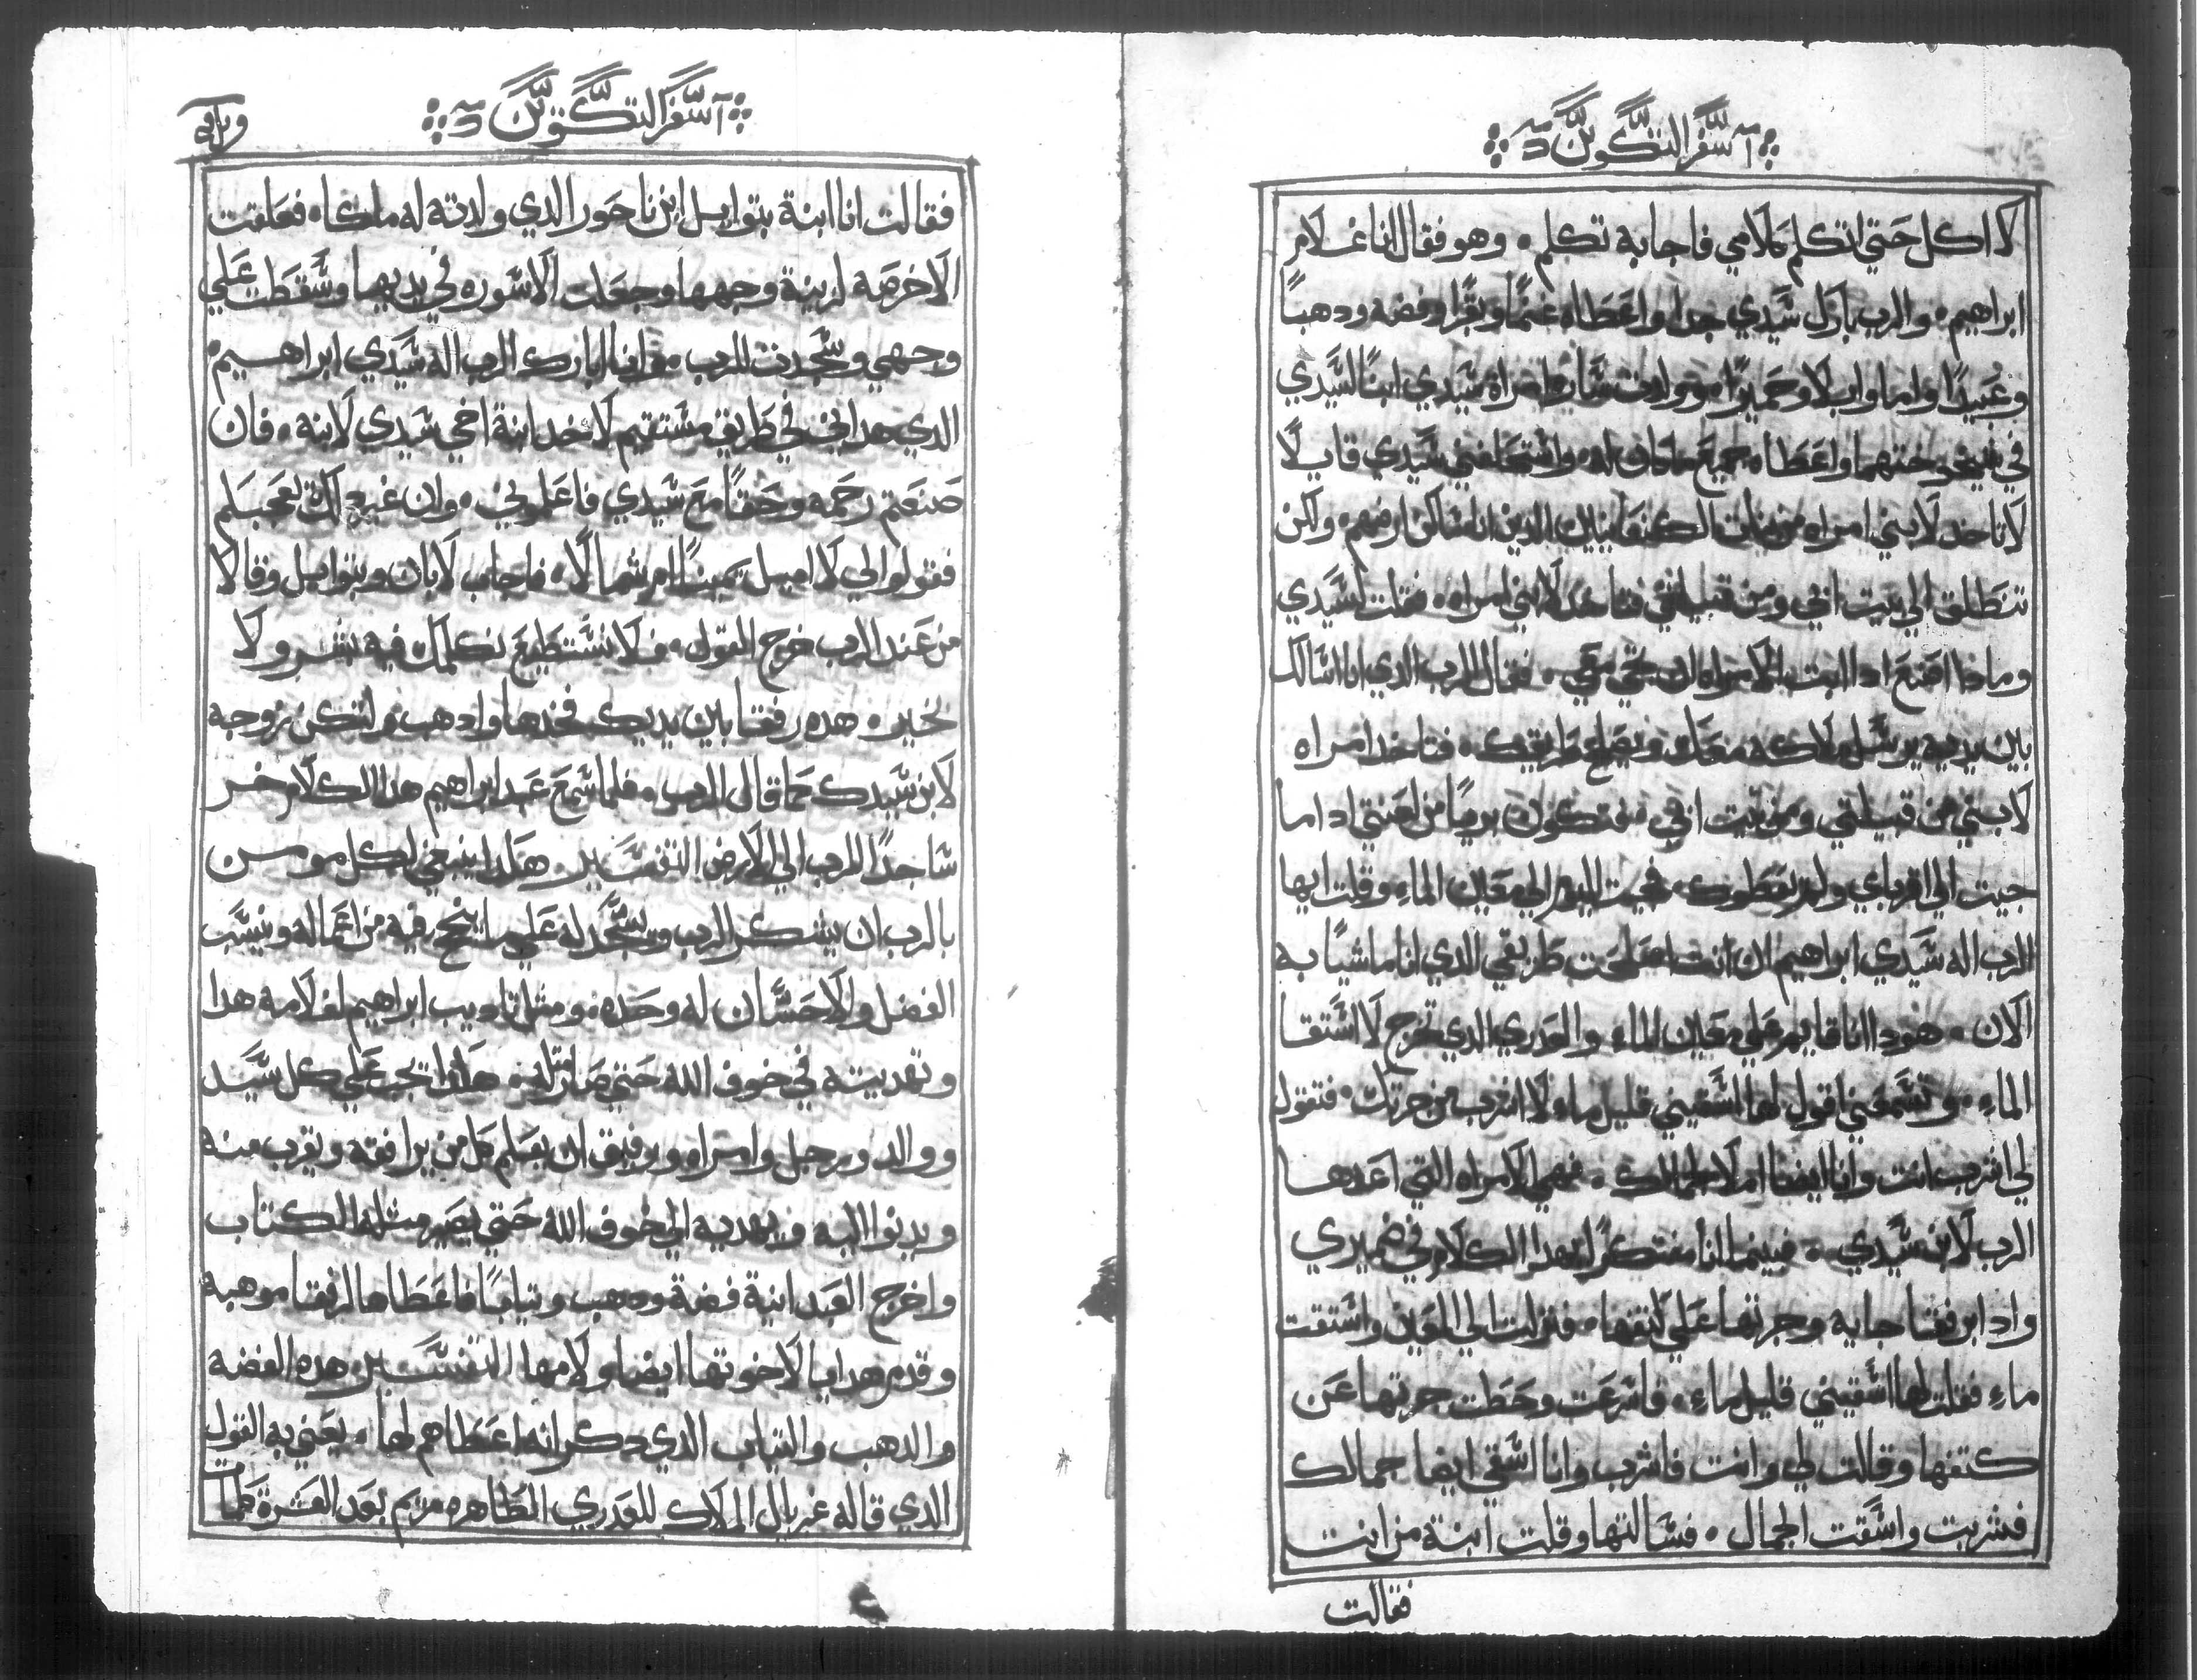 سفر التكوين
لا اكل حتي اتكلم كلامي فاجابه تكلم ٠ وهو فقال انا غلام
ابراهيم ٠ والرب بارك سيدي جدا واعطاه غنمًا وبقرًا وفضه ودهبًا
وعبيدًا واما وابلا وحميرًا ٠ وولدت ساره امراة سيدي ابنًا لسيدي
في شيخوختهما واعطاه جميع ماكان له ٠ واستحلفني سيدي قايلًا
لا تاخد لابني امراه من بنات الكنعانيين الدين انا ساكن ارضهم ٠ ولكن
تنطلق الي بيت ابي ومن قبيلتي فتاخد لابني امراه ٠ فقلت لسيدي
وماذا اصنع ادا ابت الامراه ان تجي معي ٠ فقال الرب الدي انا سالك
بين يديه يرسل ملاكه معك ويصلح طريقك ٠ فتاخد امراه
لابني من قبيلتي ومن بيت ابي ٠ فتكون بريًا من لعنتي ادا ما
جيت الي اقرباي ولم يعطوك ٠ فجيت اليوم الي معين الماء وقلت ايها
الرب اله سيدي ابراهيم ان انت اصلحت طريقي الدي انا ماشيًا به
الان ٠ هودا انا قايم علي معين الماء والعدري الدي تخرج لاستقا
الماء ٠ وتسمعني اقول لها اسقيني قليل ماء لاشرب من جرتك ٠ فتقول
لي اشرب انت وانا ايضا املا لجمالك ٠ فهي الامراه التي اعدها
الرب لابن سيدي ٠ فبينما انا مفتكرًا بهدا الكلام في ضميري
واد ابرفقا جايه وجرتها علي كتفها ٠ فنزلت الي المعين واستقت
ماء فقلت لها اسقيني قليل ماء ٠ فاسرعت وحطت جرتها عن
كتفها وقالت لي وانت فاشرب وانا اسقي ايضا جمالك
فشربت واسقت الجمال ٠ فسالتها وقلت ابنة من انت
فقالت
سفر التكوين
فقالت انا ابنة بتوايل ابن ناحور الدي ولدته له ملكاه فعلقت
الاخرصه لزينة وجهها وجعلت الاسوره في يديها وسقطت علي
وجهي وسجدت للرب ٠ وانا ابارك الرب اله سيدي ابراهيم ٠
الدي هداني في طريق مستقيم لاخد ابنة اخي سيدي لابنه ٠ فان
صنعتم رحمه وحقًا مع سيدي فاعلموني ٠ وان غير دلك
فقولوا لي لاميل يمينًا ام شمالًا ٠ فاجاب لابان وبتوايل وقالا
من عند الرب خرج القول ٠ فلا نستطيع نكلمك فيه بشر ولا
بخير ٠ هده رفقا بين يديك فخدها وادهب ولتكن زوجه
لابن سيدك كما قال الرب ٠ فلما سمع عبد ابراهيم هدا الكلام خر
ساجدًا للرب الي الارض التفسير هكدا ينبغي لكل مومن
بالرب ان يشكر الرب ويسجد له علي ما ينجح فيه من اعماله وينسب
الفضل والاحسان له وحده ٠ ومثل تاديب ابراهيم لغلامه هدا
وتهديبه في خوف الله حتي صار مثله ٠ هكدا يجب علي كل سيد
ووالد ورجل وامراه ورفيق ان يعلم كل من يرافقه ويقرب منه
ويدنوا اليه ويهديه الي خوف الله حتي يصير مثله الكتاب
واخرج العبد انية فضة ودهب وتيابًا فاعطاها لرفقا موهبه
وقدم هدايا لاخوتها ايضا ولامها التفسير هده الفضه
والدهب والتياب الدي دكر انه اعطاهم لها ٠ يعني به القول
الدي قاله غبريال الملاك للعدري الطاهره مريم بعد العشرة كلمات